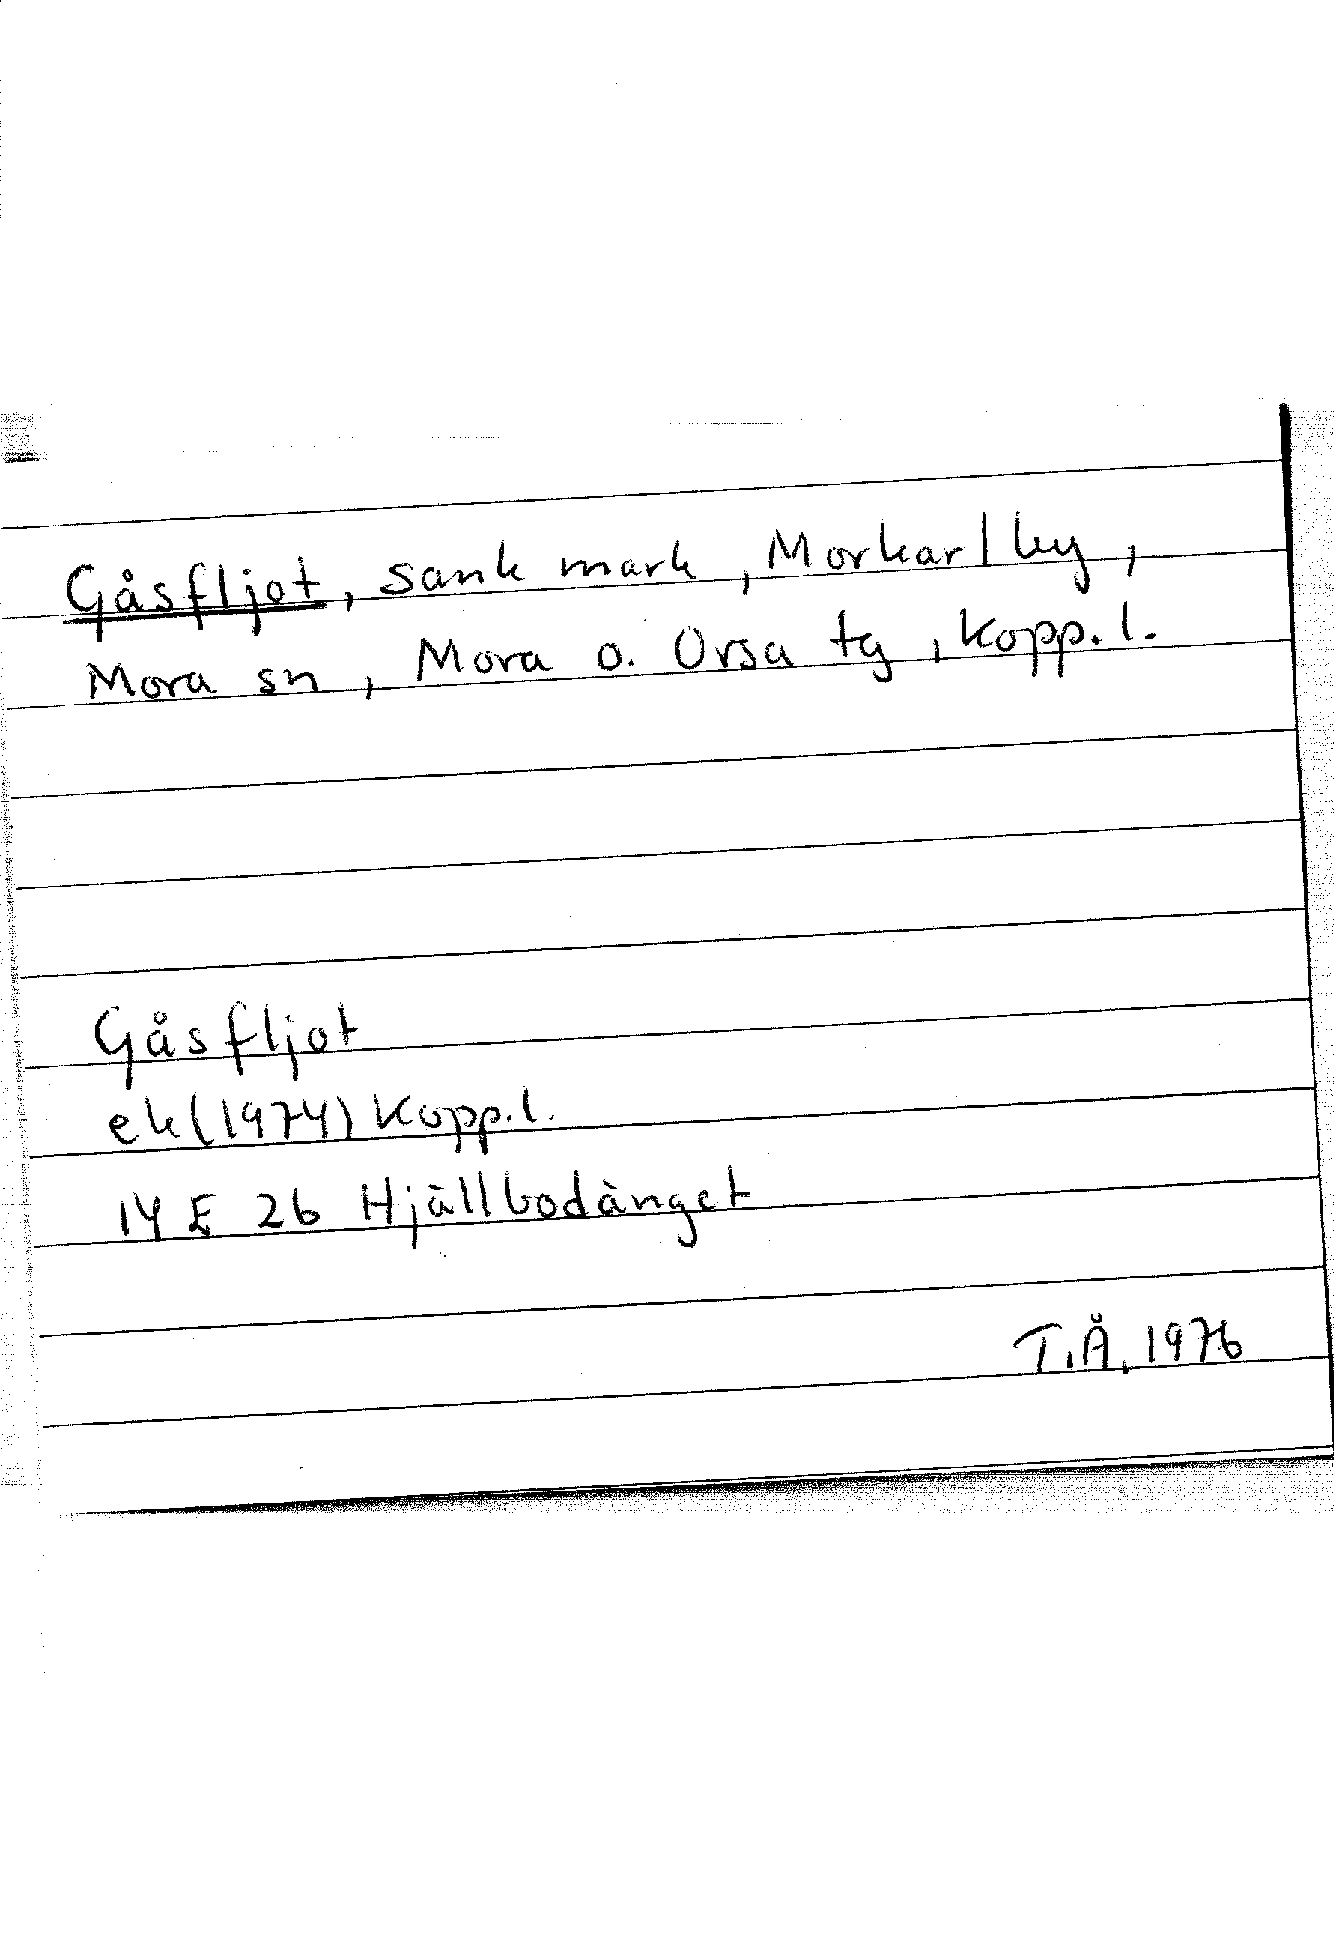 Gåsfljot, sank mark, Morkarlby,
Mora sn, Mora o. Orsa tg, Kopp. l.
Gåsfljot
ek (1974) Kopp. l.
14 E 2b Hjällbodänget
T.Å. 1976